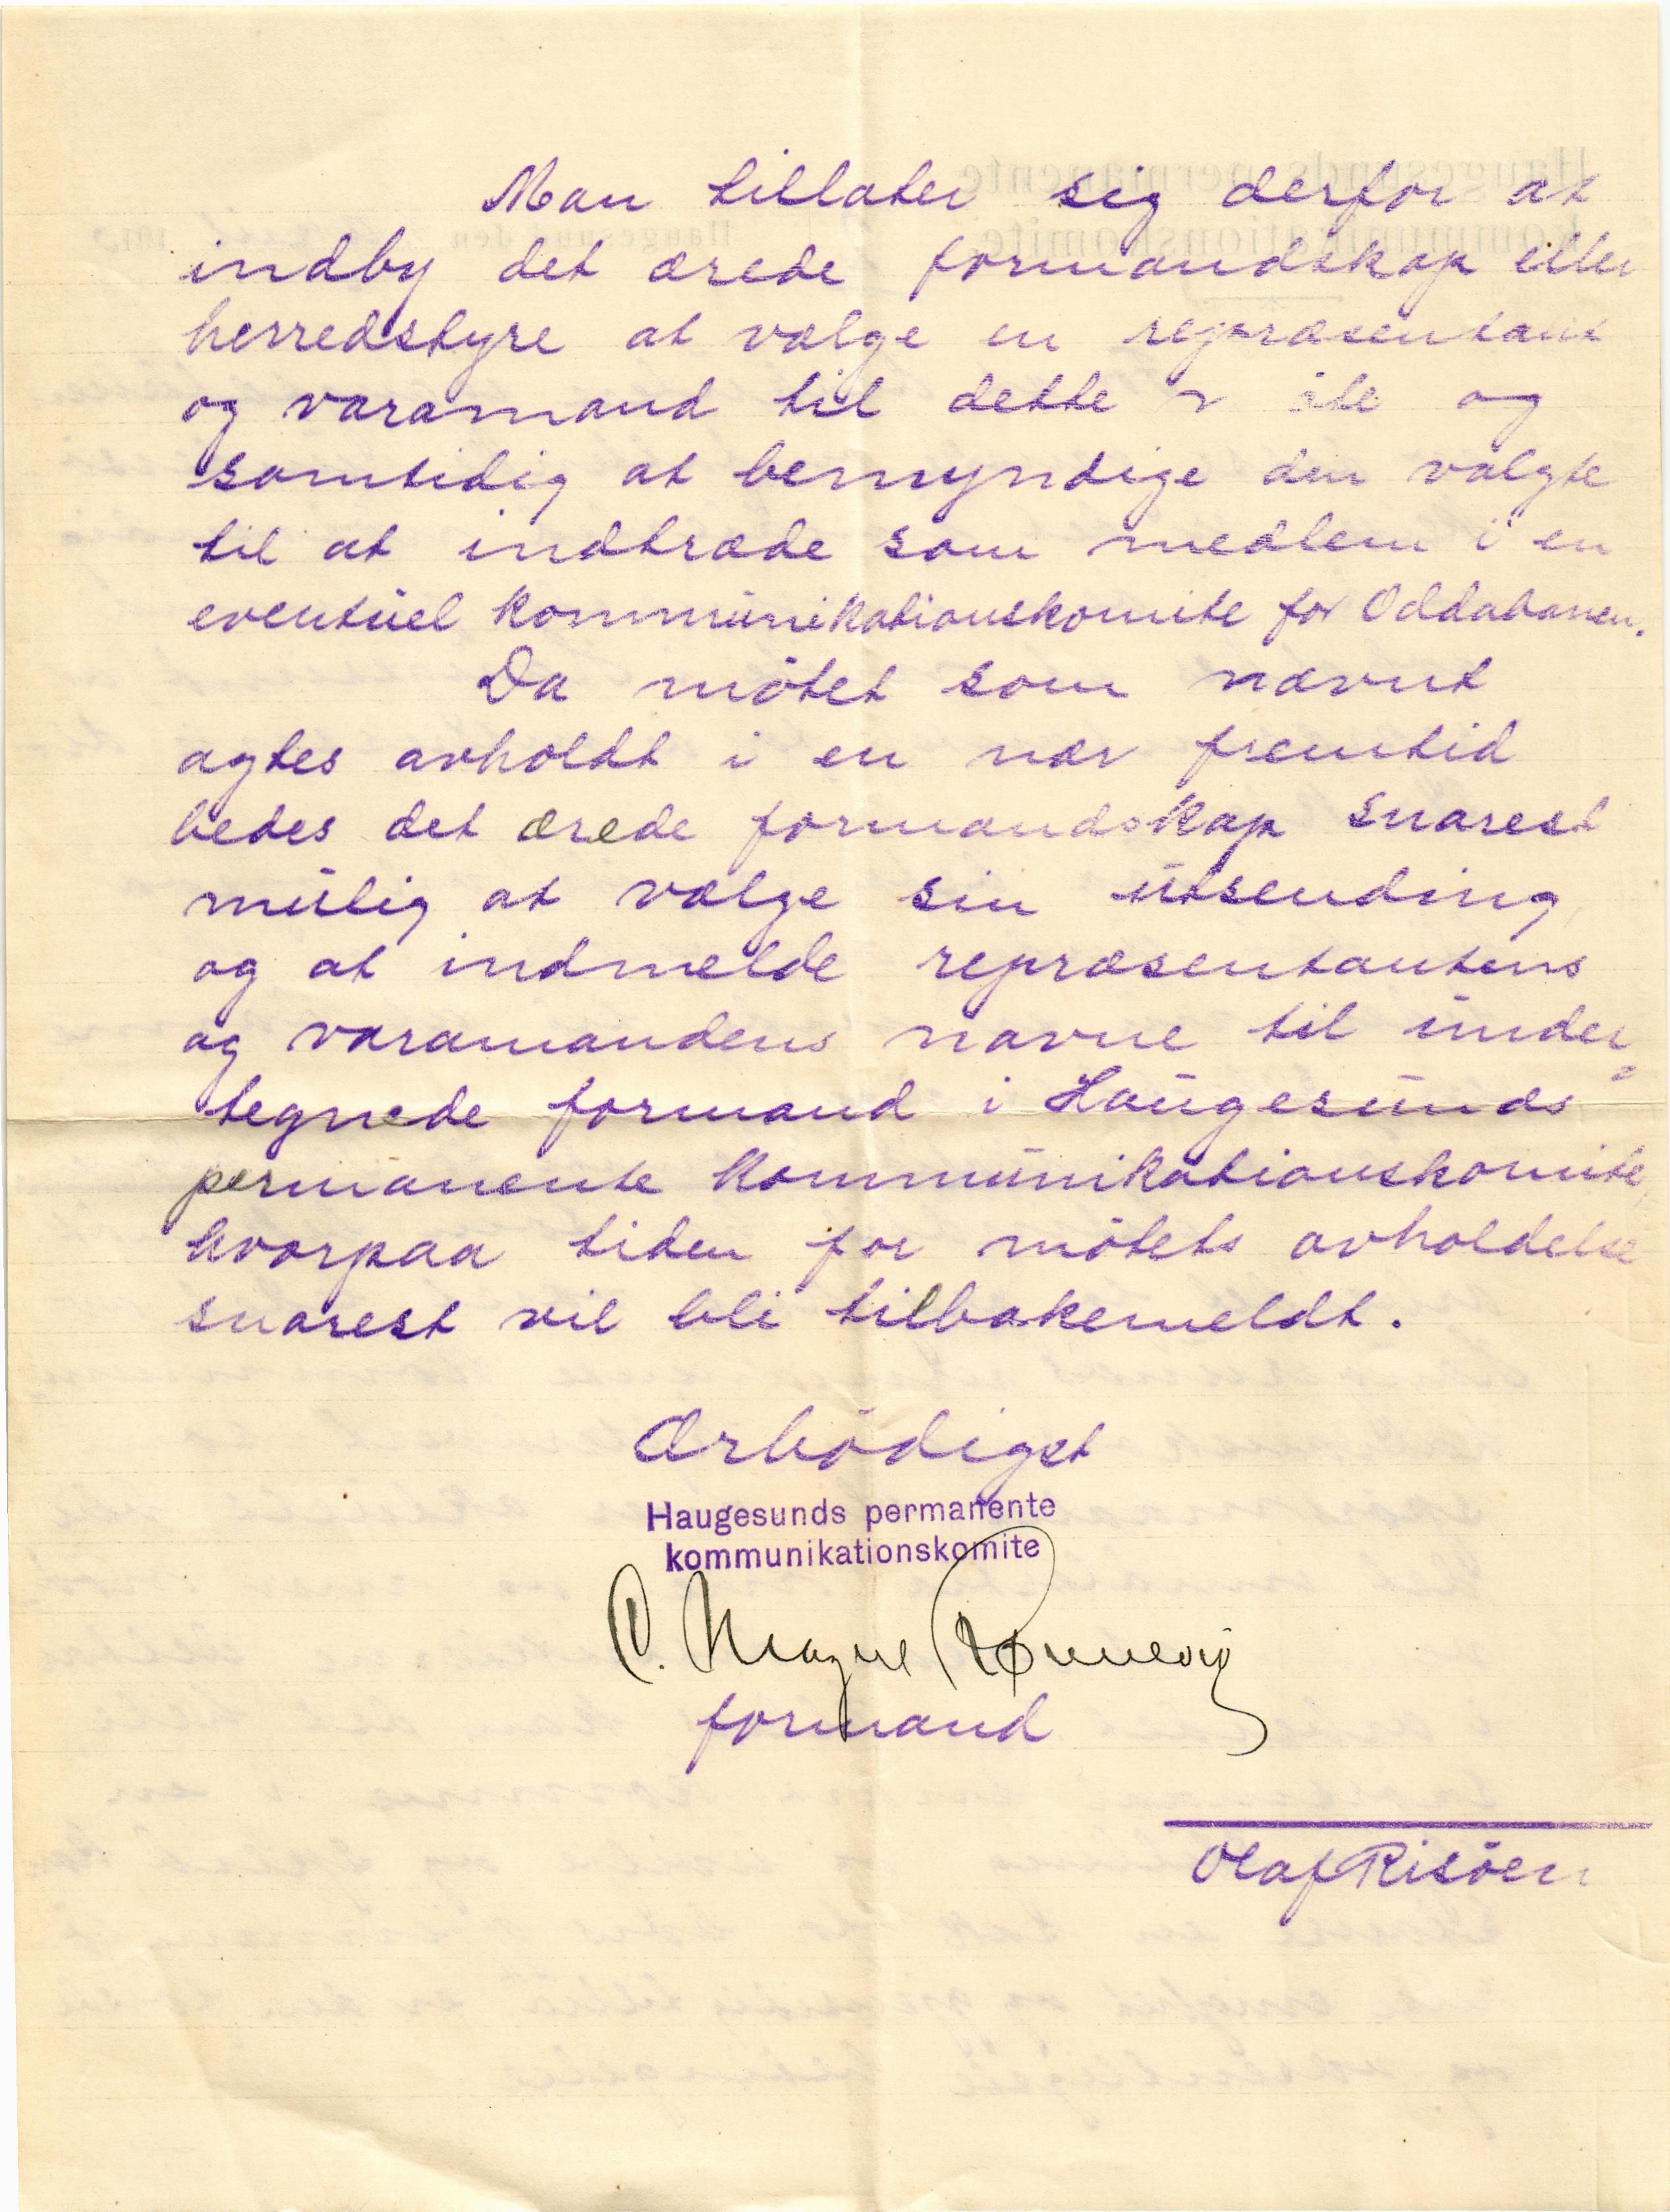 Man tillater sig derfor at
indby det ærede formandskap eller
herredstyre at vælge en repræsentant
og varamand til dette og
samtidig at bemyndige den valgte
til at indtræde som medlem i en
eventuel kommunikationskomite for Oddabanen.
Da mötet som nævnt
agtes avholdt i en nær fremtid
bedes det ærede formandskap snarest
mulig at vælge sin utsending
og at indmelde repræsentantens
og varamandens navne til under=
tegnede formand i Haugesunds
permanente kommunikationskomite,
hvorpaa tiden for mötets avholdelse
snarest vil bli tilbakemeldt.
Ærbödigst
Haugesunds permanente
kommunikationskomite
C. Magne Rønnevig
formand
Olaf Risöen